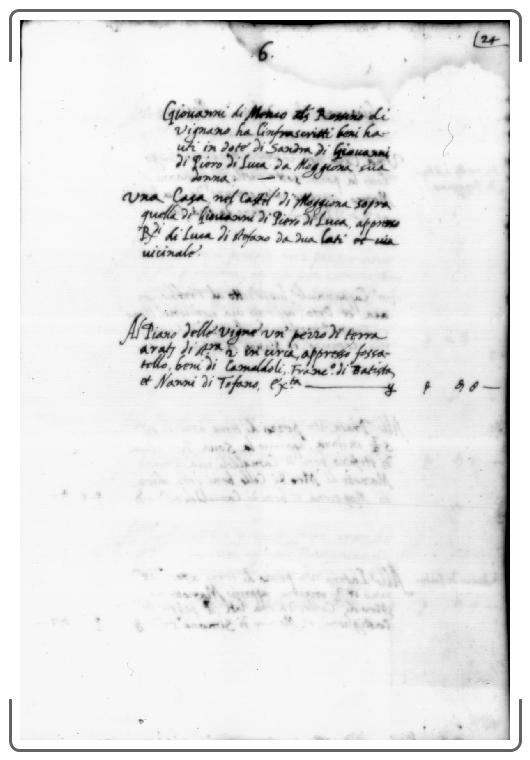 24
6.
Giovanni di Menco Rossino di
Vignano ha l'infrascritti beni ha-
uti in dote di Sandra di Giovanni
di Piero di Luca da Moggiona sua
donna.
Una Casa nel Castel di Moggiona sopra
quella di Giovanni di Piero di Luca, appresso
di Luca di Stefano da dua lati et via
vicinale.
Al Piano delle Vigne un' pezzo di terra
di 2 in circa, appresso fossa-
tello, beni di Camaldoli, Franc.o di Batista,
et Nanni di Tofano, exta